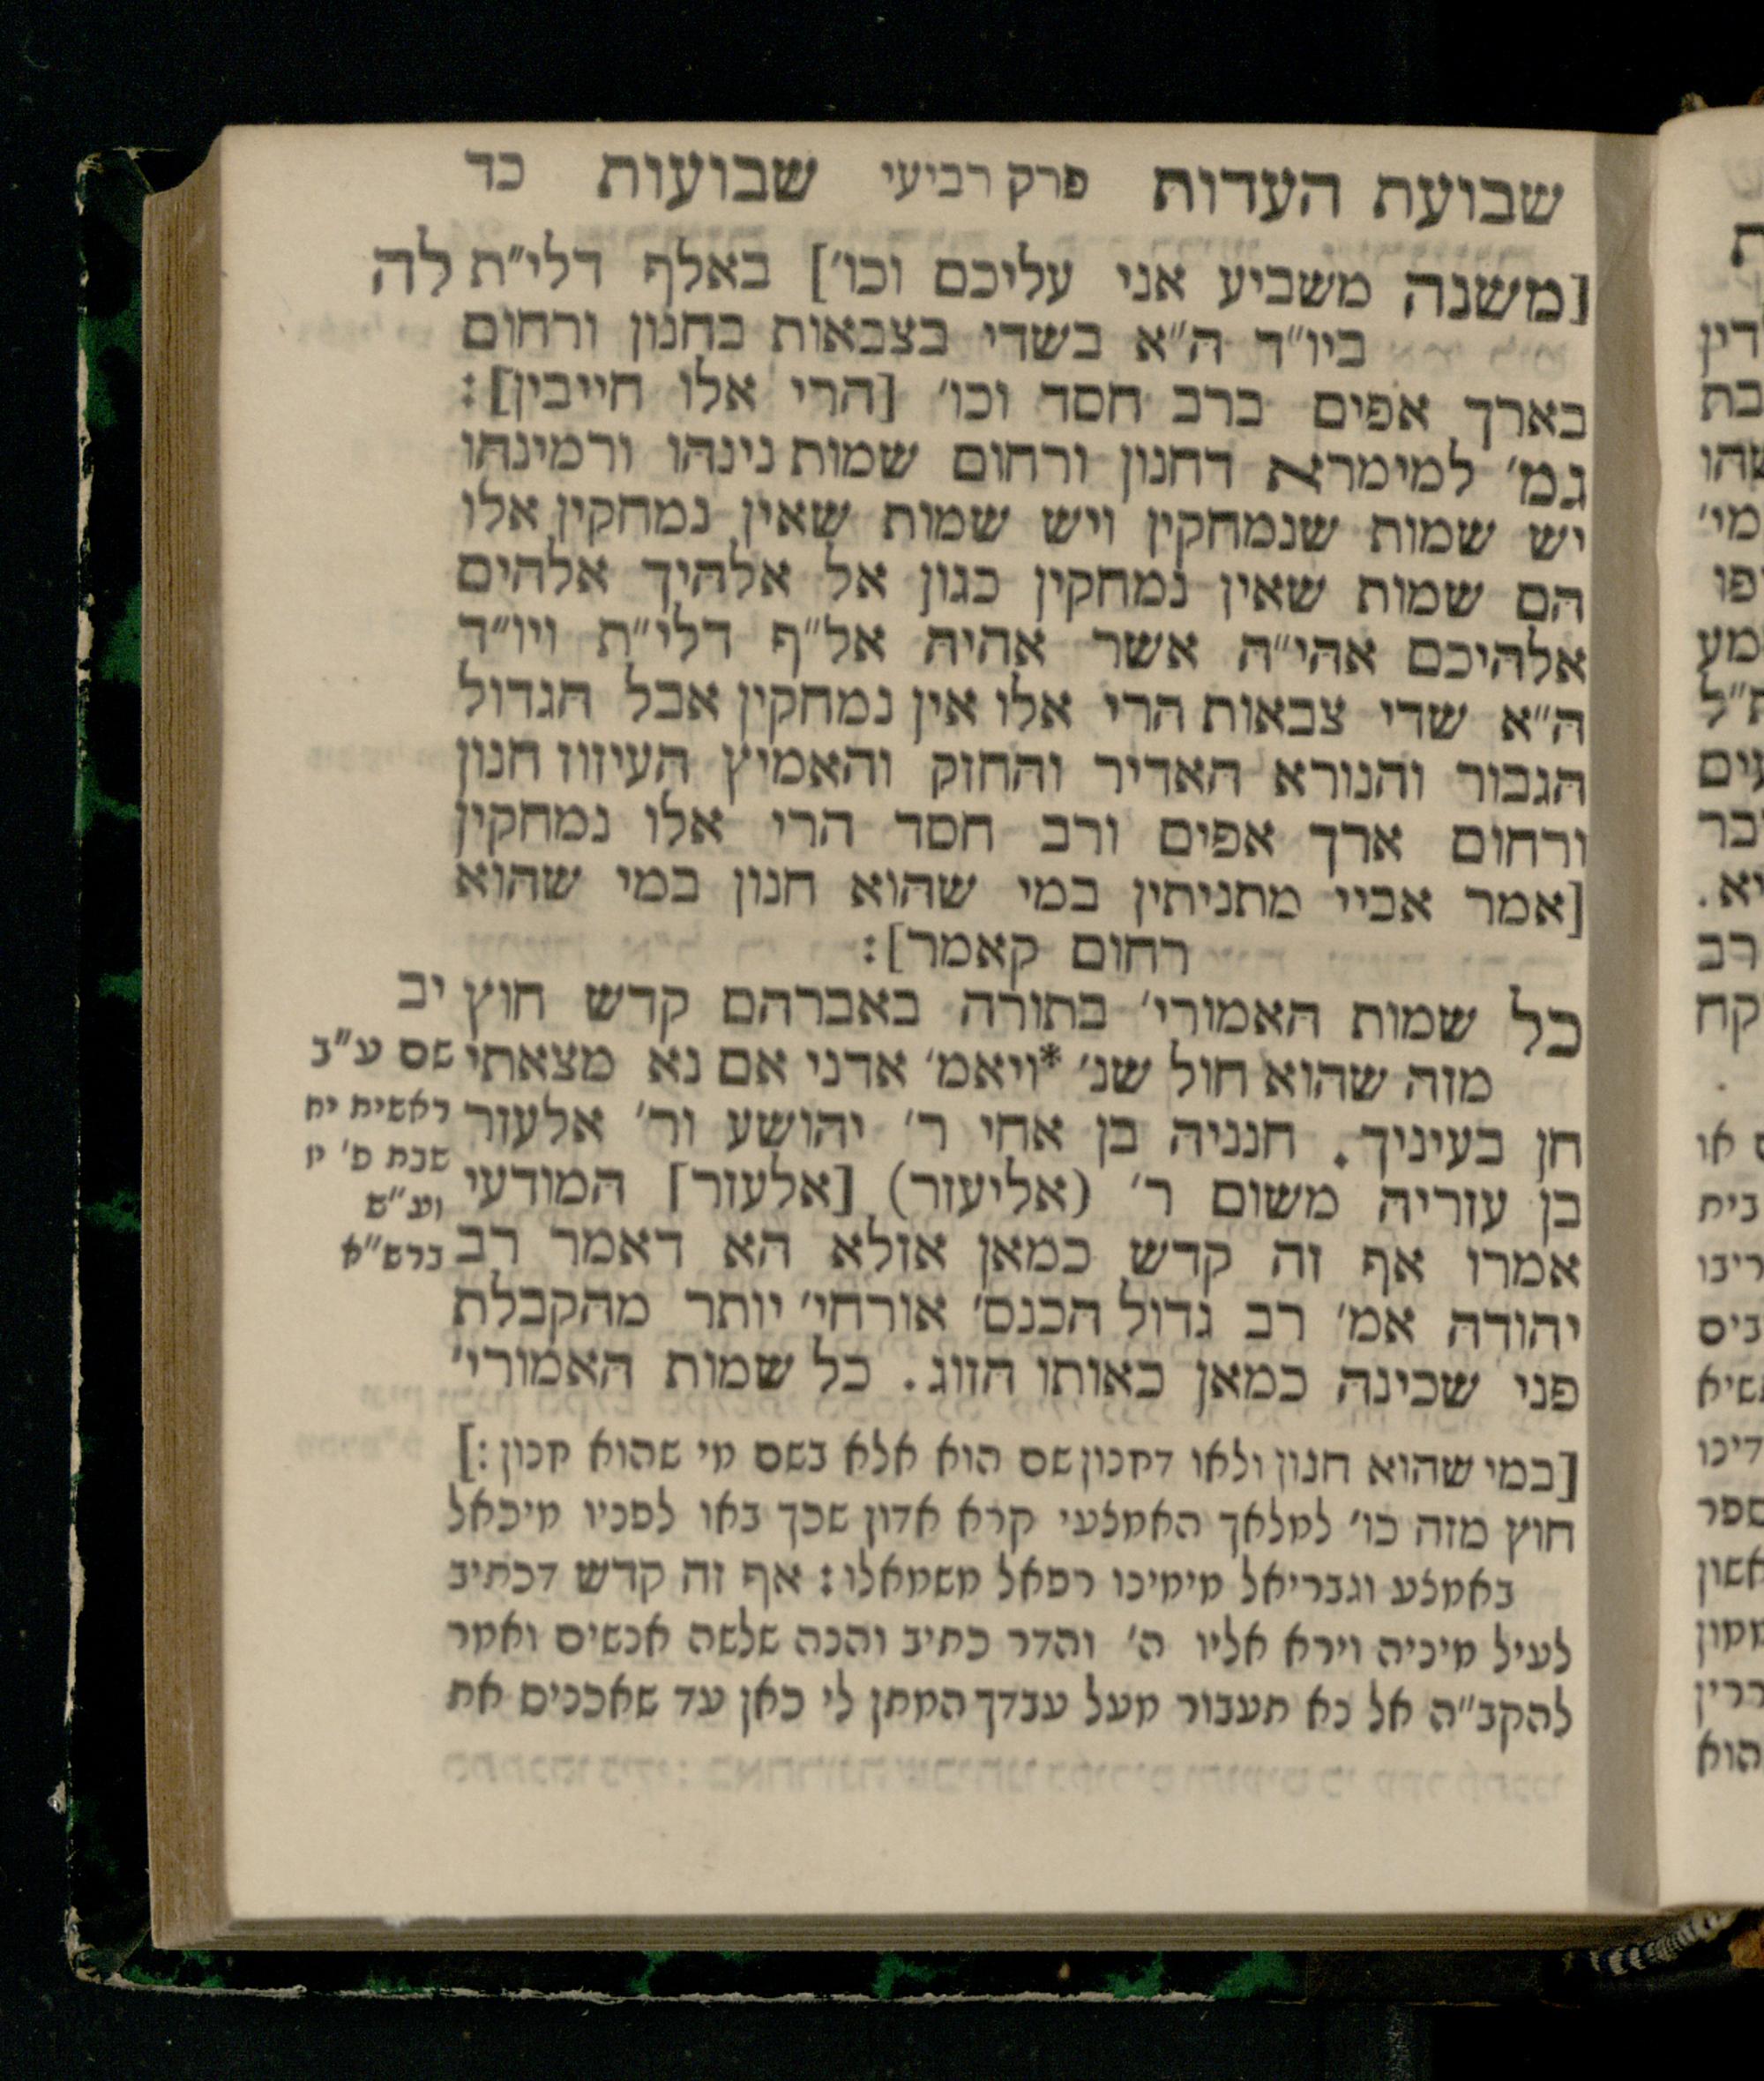 שבועת העדות פרק רביעי שבועות כד
[משנה משביע אני עליכם וכו׳] באלף דלי״ת לה
ביו״ד ה״א בשדי בצבאות בחנון ורחום
בארך אפים ברב חסד וכו׳ [הרי אלו חייבין]:
גמ׳ למימרא דחנון ורחום שמות נינהו ורמינהו
יש שמות שנמחקין ויש שמות שאין נמחקין אלו
הם שמות שאין נמחקין כגון אל אלהיך אלהים
אלהיכם אהי״ה אשר אהיה אל״ף דלי״ת ויו״ד
ה״א שדי צבאות הרי אלו אין נמחקין אבל הגדול
הגבור והנורא האדיר והחזק והאמיץ העיזוז חנון
ורחום ארך אפים ורב חסד הרי אלו נמחקין
[אמר אביי מתניתין במי שהוא חנון במי שהוא
רחום קאמר]:
כל שמות האמורי׳ בתורה באברהם קדש חוץ יב
מזה שהוא חול שנ׳ *ויאמ׳ אדני אם נא מצאתי שם ע״ב
חן בעיניך. חנניה בן אחי ר׳ יהושע ור׳ אלעזר ראשית יח
בן עזריה משום ר׳ (אליעזר) [אלעזר] המודעי
שבת פ׳ יו
וע״ש
אמרו אף זה קדש כמאן אזלא הא דאמר רב ברש״א
יהודה אמ׳ רב גדול הכנס׳ אורחי׳ יותר מהקבלת
פני שכינה כמאן כאותו הזוג. כל שמות האמורי׳
[במי שהוא חנון ולאו דחנון שם הוא אלא בשם מי שהוא חנון:]
חוץ מזה כו׳ למלאך האמצעי קרא אדון שכך באו לפניו מיכאל
באמצע וגבריאל מימינו רפאל משמאלו: אף זה קדש דכתיב
לעיל מיניה וירא אליו ה׳ והדר כתיב והנה שלשה אנשים ואמר
להקב״ה אל נא תעבור מעל עבדך המתן לי כאן עד שאכניס את